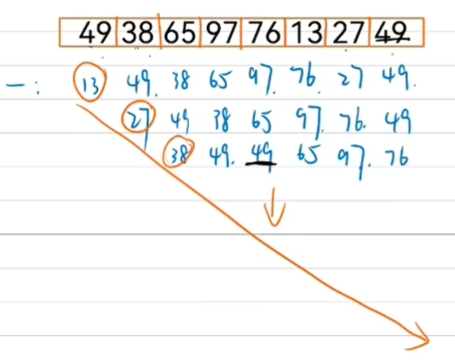 49 38 65 97 76 13 27 49
一: 13 49. 38 65 97. 76. 27 49.
27 49 38 65 97. 76. 49
38 49. 49 65 97. 76